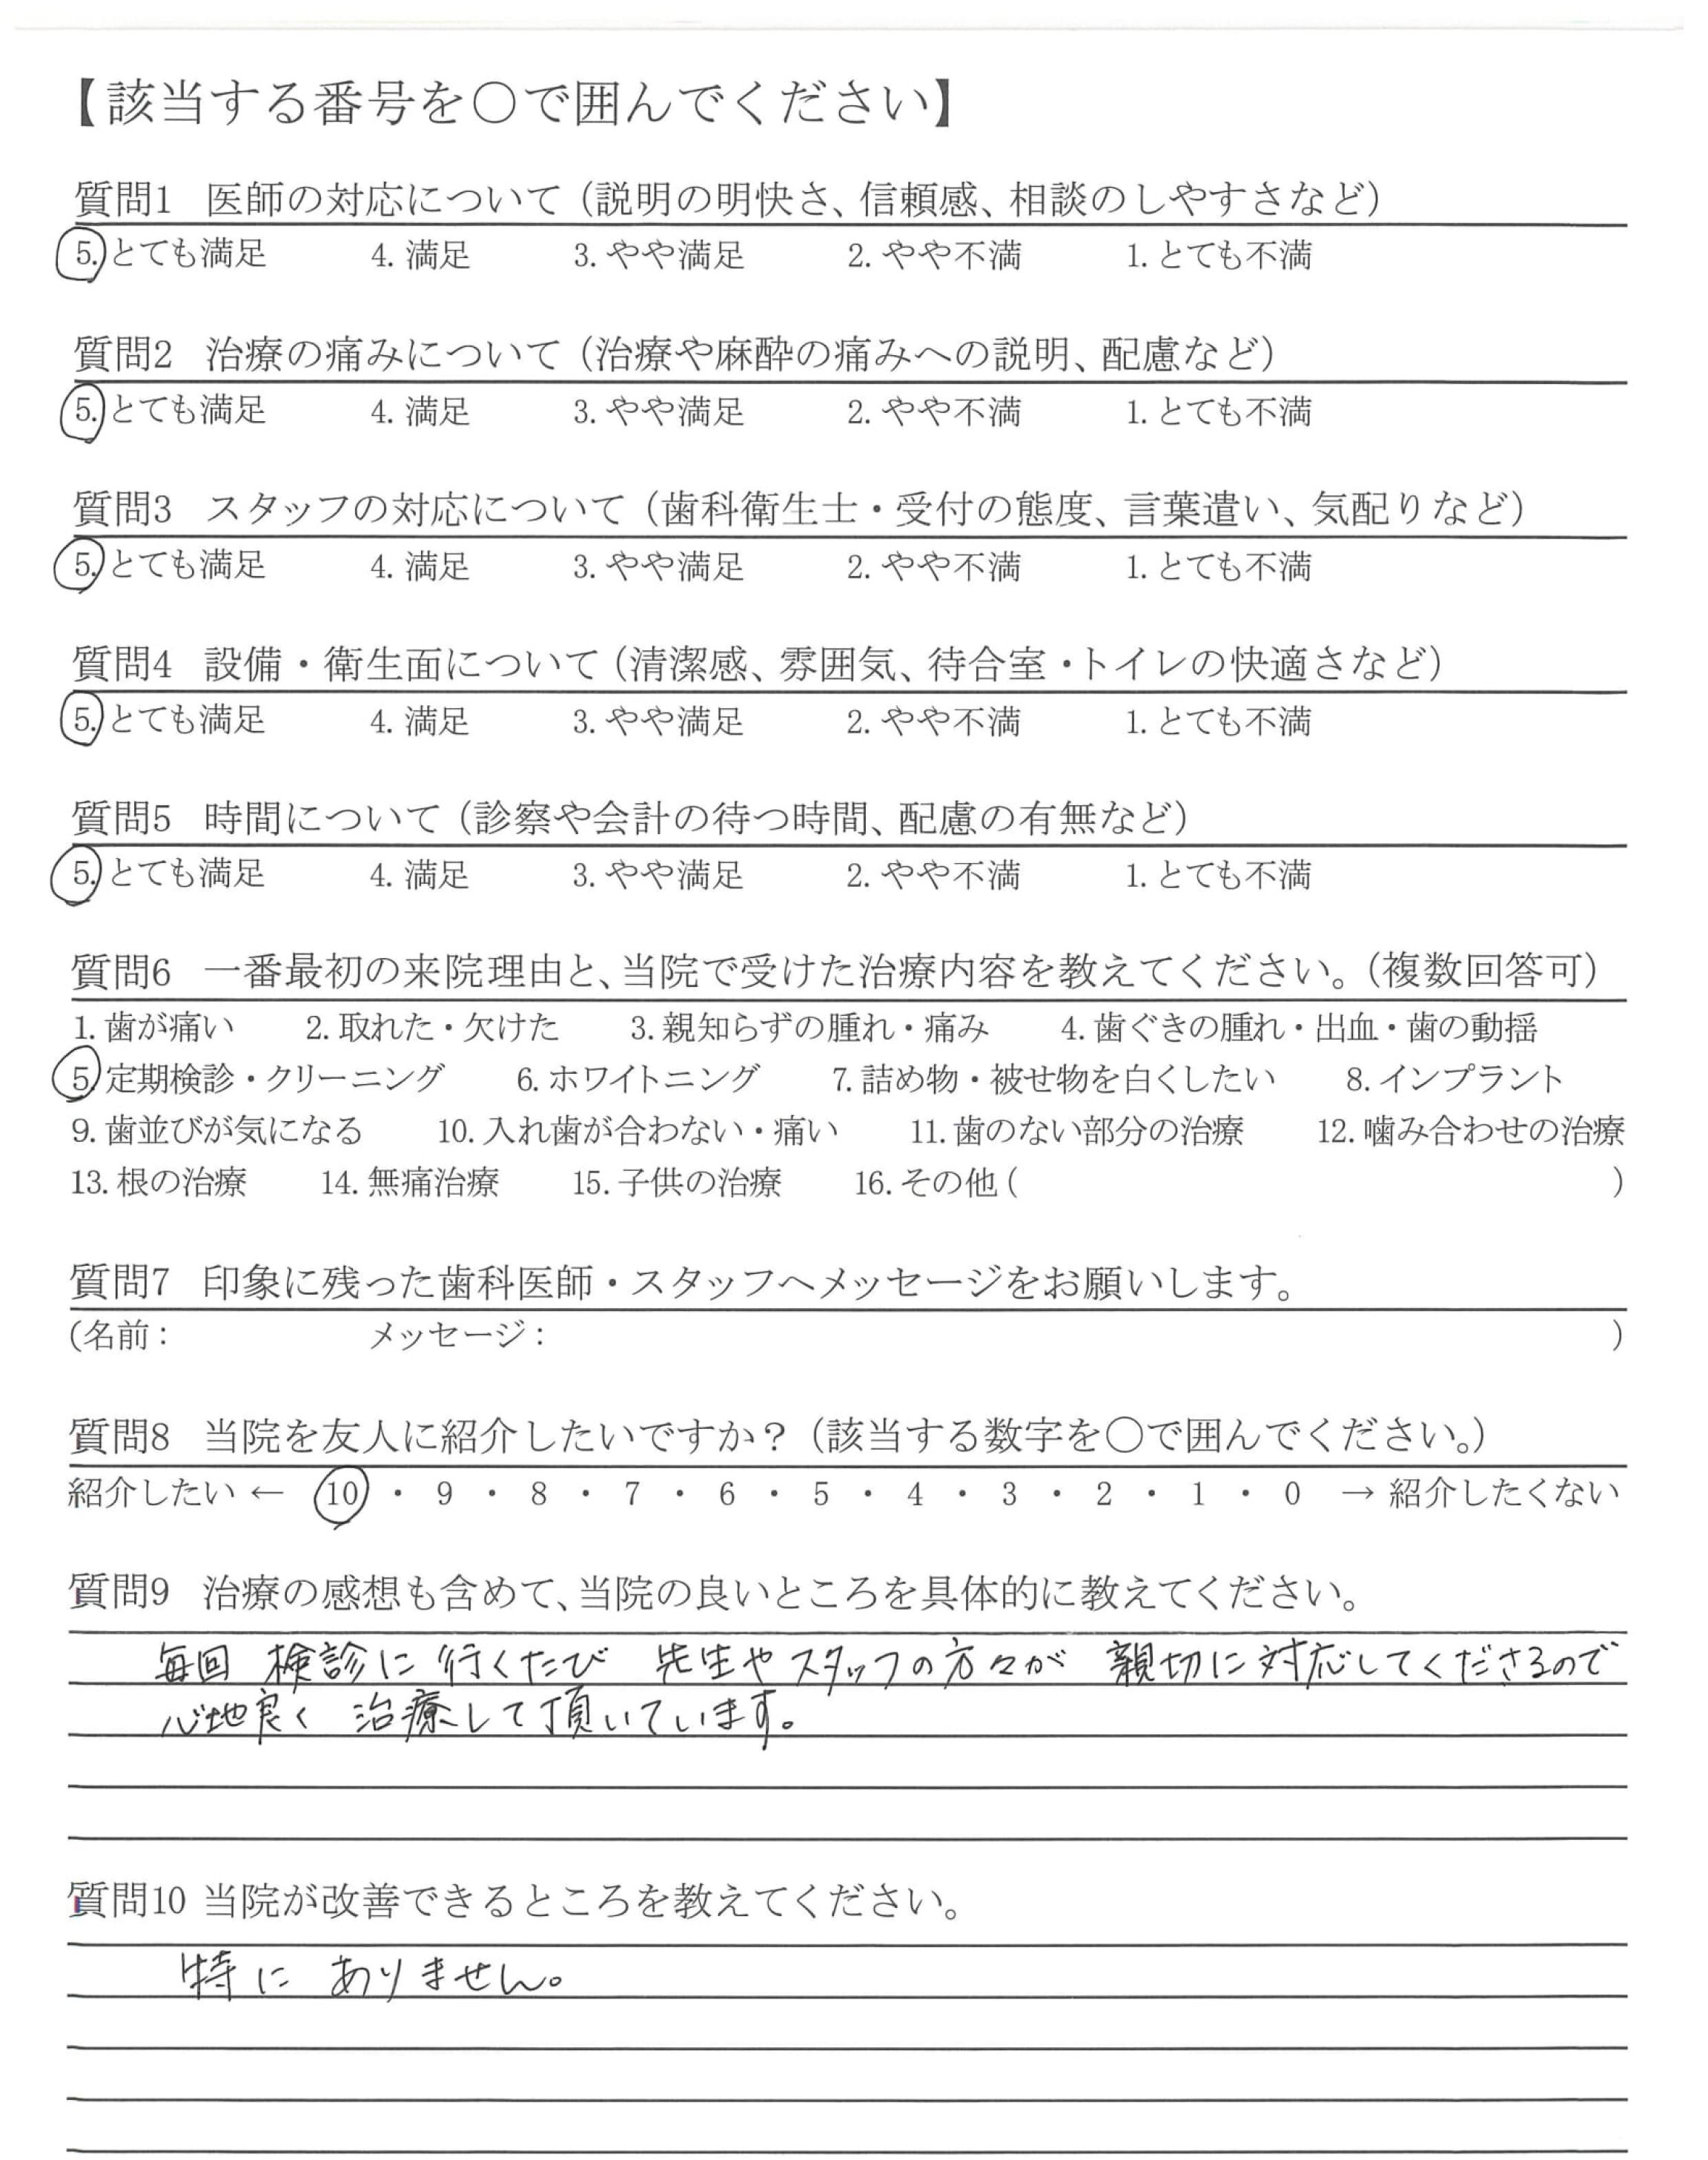 【該当する番号を○で囲んでください】
質問1 医師の対応について（説明の明快さ、信頼感、相談のしやすさなど）
5. とても満足 4. 満足 3. やや満足 2. やや不満 1. とても不満
質問2 治療の痛みについて（治療や麻酔の痛みへの説明、配慮など）
5. とても満足 4. 満足 3. やや満足 2. やや不満 1. とても不満
質問3 スタッフの対応について（歯科衛生士・受付の態度、言葉遣い、気配りなど）
5. とても満足 4. 満足 3. やや満足 2. やや不満 1. とても不満
質問4 設備・衛生面について（清潔感、雰囲気、待合室・トイレの快適さなど）
5. とても満足 4. 満足 3. やや満足 2. やや不満 1. とても不満
質問5 時間について（診察や会計の待つ時間、配慮の有無など）
5. とても満足 4. 満足 3. やや満足 2. やや不満 1. とても不満
質問6 一番最初の来院理由と、当院で受けた治療内容を教えてください。（複数回答可）
1. 歯が痛い 2. 取れた・欠けた 3. 親知らずの腫れ・痛み 4. 歯ぐきの腫れ・出血・歯の動揺
5. 定期検診・クリーニング 6. ホワイトニング 7. 詰め物・被せ物を白くしたい 8. インプラント
9. 歯並びが気になる 10. 入れ歯が合わない・痛い 11. 歯のない部分の治療 12. 噛み合わせの治療
13. 根の治療 14. 無痛治療 15. 子供の治療 16. その他（ ）
質問7 印象に残った歯科医師・スタッフへメッセージをお願いします。
（名前： メッセージ： ）
質問8 当院を友人に紹介したいですか？（該当する数字を○で囲んでください。）
紹介したい ← 10 ・ 9 ・ 8 ・ 7 ・ 6 ・ 5 ・ 4 ・ 3 ・ 2 ・ 1 ・ 0 → 紹介したくない
質問9 治療の感想も含めて、当院の良いところを具体的に教えてください。
毎回 検診に行くたび 先生やスタッフの方々が 親切に対応してくださるので
心地良く 治療して頂いています。
質問10 当院が改善できるところを教えてください。
特に ありません。